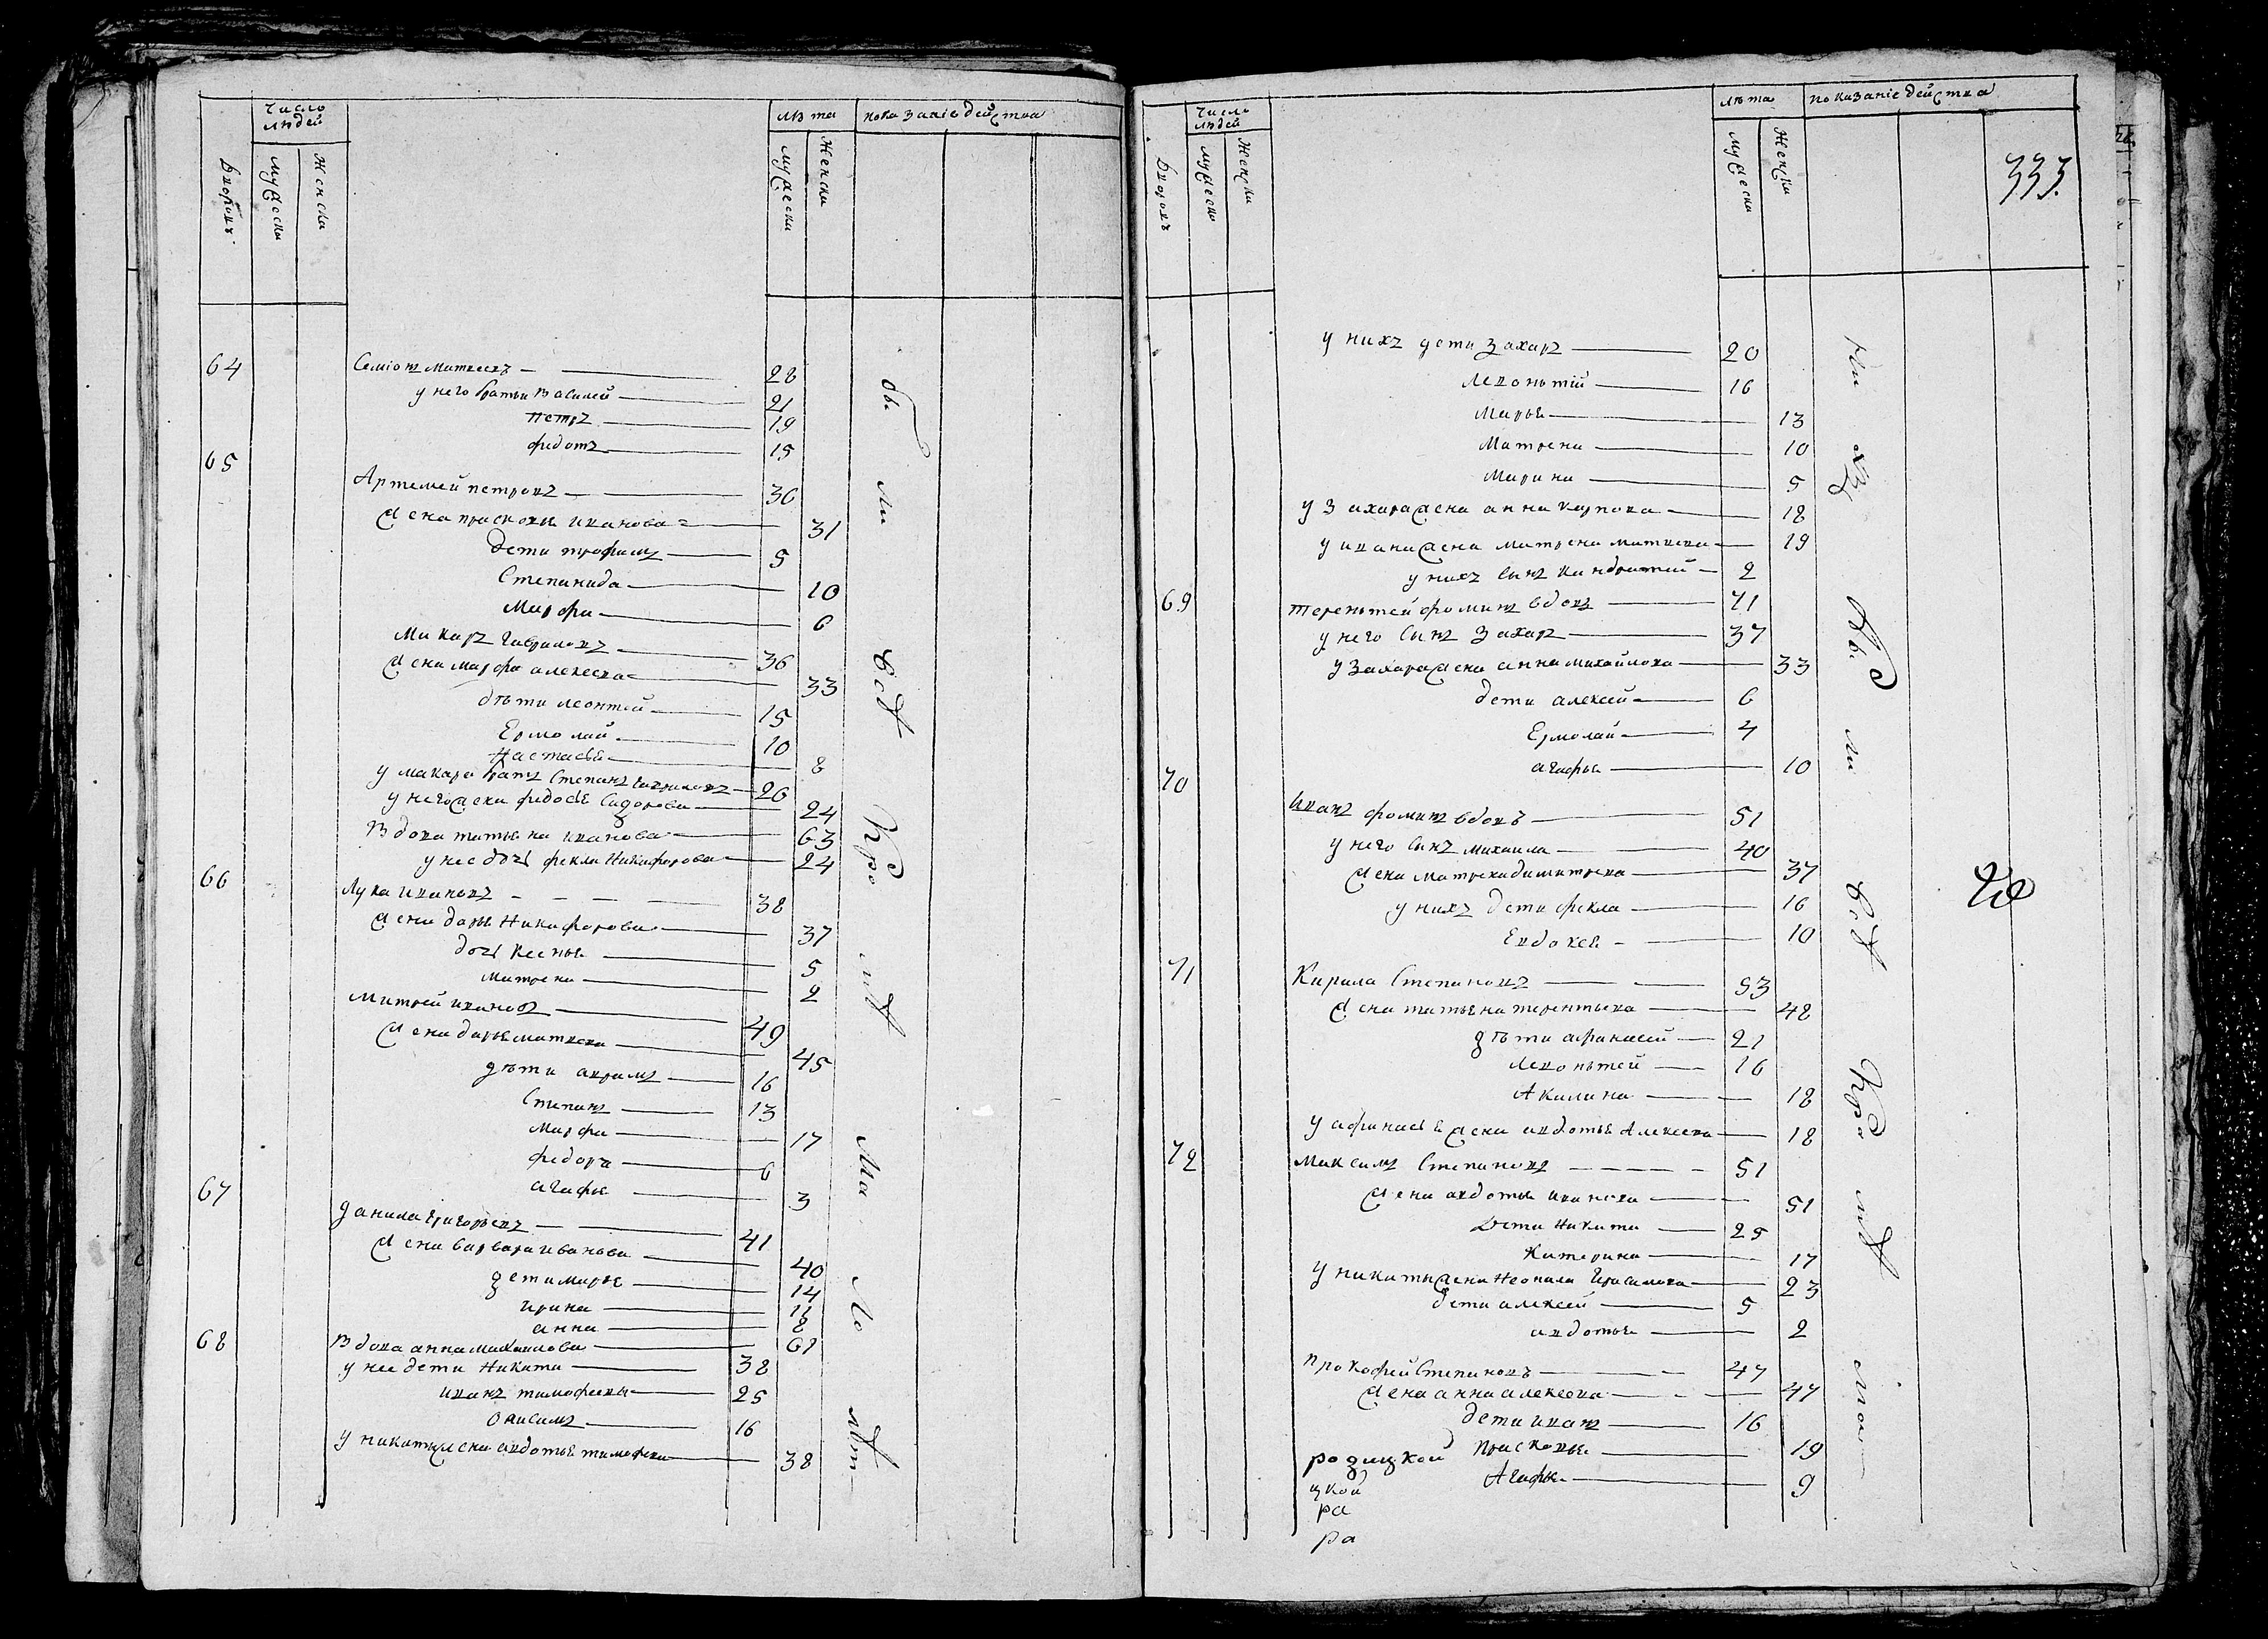 число людей
лѣта
показаніе действа
дворовъ
мужеска
женска
мужеска
женска
64 Семіонъ Матвеевъ 28
у него братьи Василей 21
Петръ 19
Федотъ 15
65
Артемей Петровъ 36
жена Прасковья Иванова 31
дети Трофимъ 5
Степанида 10
Марфа 6
Макаръ Гавриловъ 36
жена Марфа Алексева 33
дѣти Леонтей 15
Ермолай 10
Настасья 8
у Макара братъ Степанъ Гавриловъ 26
у него жена Федосья Сидорова 24
Вдова Татьяна Иванова 63
у нее дочь Фекла Никифорова 24
66 Лука Ивановъ 38
жена Дарья Никифорова 37
дочь Ксенья 5
Матрена 2
Митрей Ивановъ 49
жена Дарья Матвеева 45
дѣти Аврамъ 16
Степанъ 13
Марфа 17
Федоръ 6
Агафья 3
67
Данила Григорьевъ 41
жена Варвара Иванова 40
дети Марья 14
Ирина 11
Анна 8
68 Вдова Анна Михаилова 61
у нее дети Никита 38
Иванъ Тимофеевы 25
Онисимъ 16
у Никиты жена Авдотья Тимофеева 38
число людей
лѣта
показаніе действа
дворовъ
мужеска
женска
мужеска
женска
333.
у нихъ дети Захаръ 20
Левоньтій 16
Марья 13
Матрена 10
Марина 5
у Захара жена Анна Карпова 18
у Ивана жена Матрена Матвеева 19
у нихъ сынъ Кандратей 2
69 Тереньтей Фоминъ вдовъ 71
у него сынъ Захаръ 37
у Захара жена Анна Михайлова 33
дети Алексей 6
Ермолай 4
Агафья 10
70
Иванъ Фоминъ вдовъ 51
у него сынъ Михаила 40
жена Матрена Димитрева 37
у нихъ дети Фекла 16
Евдокея 10
71 Кирила Степановъ 53
жена Татьяна Терентьева 48
дѣти Афанасей 21
Левонътей 16
Акилина 18
у Афанасья жена Авдотья Алексеева 18
72 Максимъ Степановъ 51
жена Авдотья Иванова 51
Дети Никита 25
Катерина 17
у Никиты жена Неонила Герасимова 23
дети Алексей 5
Авдотья 2
Прокофей Степановъ 47
жена Анна Алексеева 47
дети Иванъ 16
Прасковья 19
Агафья 9
родицкой
цкой
ра
ра